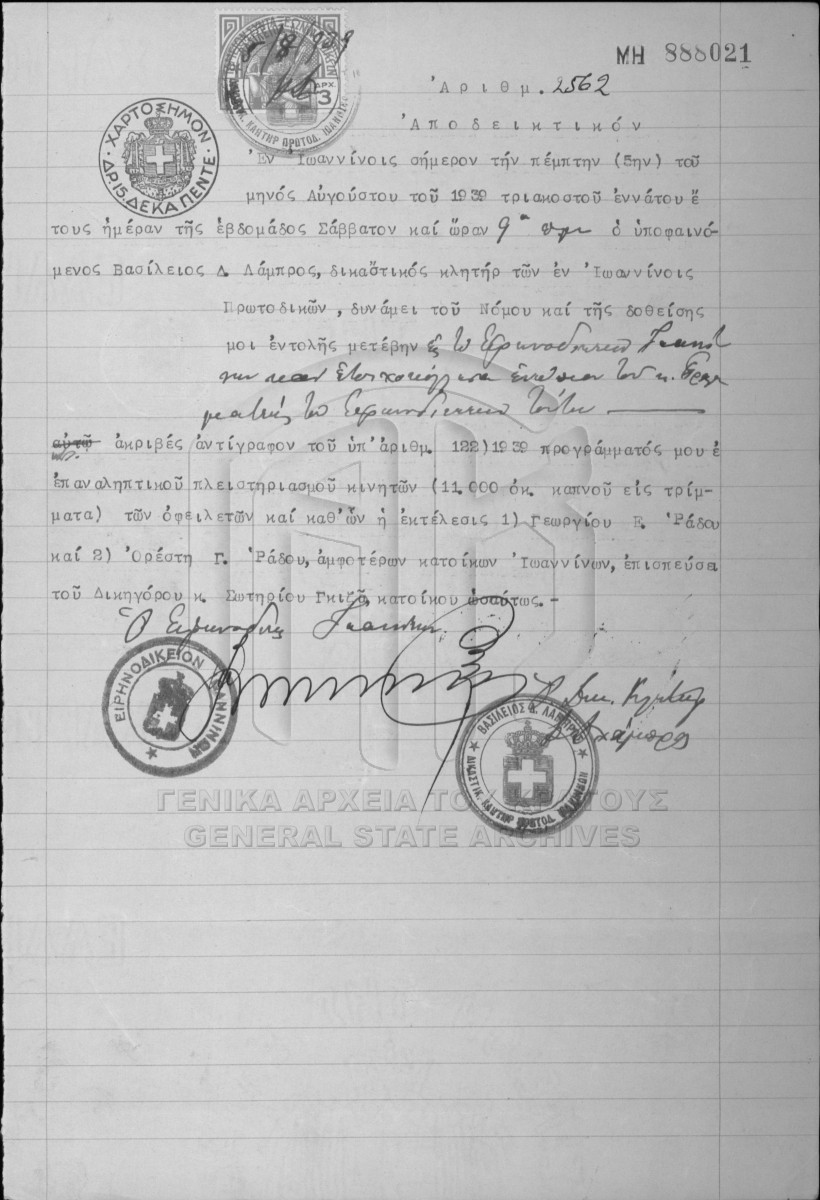 ΜΗ 888021
5/8/939
ΔΡΑΧ. 3
Ἀριθμ. 2562
ΧΑΡΤΟΣΗΜΟΝ
ΔΡ.15. ΔΕΚΑΠΕΝΤΕ
Ἀποδεικτικόν
Ἐν Ἰωαννίνοις σήμερον τήν πέμπτην (5ην) τοῦ
μηνός Αὐγούστου τοῦ 1939 τριακοστοῦ ἐννάτου ἔ
τους ἡμέραν τῆς ἑβδομάδος Σάββατον καί ὥραν 9 πμ ὁ ὑποφαινό-
μενος Βασίλειος Δ. Λάμπρος, δικαστικός κλητήρ τῶν ἐν Ἰωαννίνοις
Πρωτοδικῶν, δυνάμει τοῦ Νόμου καί τῆς δοθείσης
μοι ἐντολῆς μετέβην εἰς τό Εἰρηνοδικεῖον
ἐνώπιον τοῦ κ. Γραμ
ματέως τοῦ Εἰρηνοδικείου τούτου
αὐτῷ ἀκριβές ἀντίγραφον τοῦ ὑπ' ἀριθμ. 122)1939 προγράμματός μου ἐ
ἐπαναληπτικοῦ πλειστηριασμοῦ κινητῶν (11.000 ὀκ. καπνοῦ εἰς τρίμ-
ματα) τῶν ὀφειλετῶν καί καθ' ὧν ἡ ἐκτέλεσις 1) Γεωργίου Ε. Ῥάδου
καί 2) Ὀρέστη Γ. Ῥάδου, ἀμφοτέρων κατοίκων Ἰωαννίνων, ἐπισπεύσει
τοῦ Δικηγόρου κ. Σωτηρίου Γκίζα, κατοίκου ὡσαύτως.-
Ὁ Εἰρηνοδίκης Ἰωαννίνων
ΕΙΡΗΝΟΔΙΚΕΙΟΝ ΙΩΑΝΝΙΝΩΝ
Ὁ Δικ. Κλητήρ
Β Λάμπρος
ΒΑΣΙΛΕΙΟΣ Δ. ΛΑΜΠΡΟΣ
ΔΙΚΑΣΤΙΚ. ΚΛΗΤΗΡ ΠΡΩΤΟΔ. ΙΩΑΝΝΙΝΩΝ
ΓΕΝΙΚΑ ΑΡΧΕΙΑ ΤΟΥ ΚΡΑΤΟΥΣ
GENERAL STATE ARCHIVES